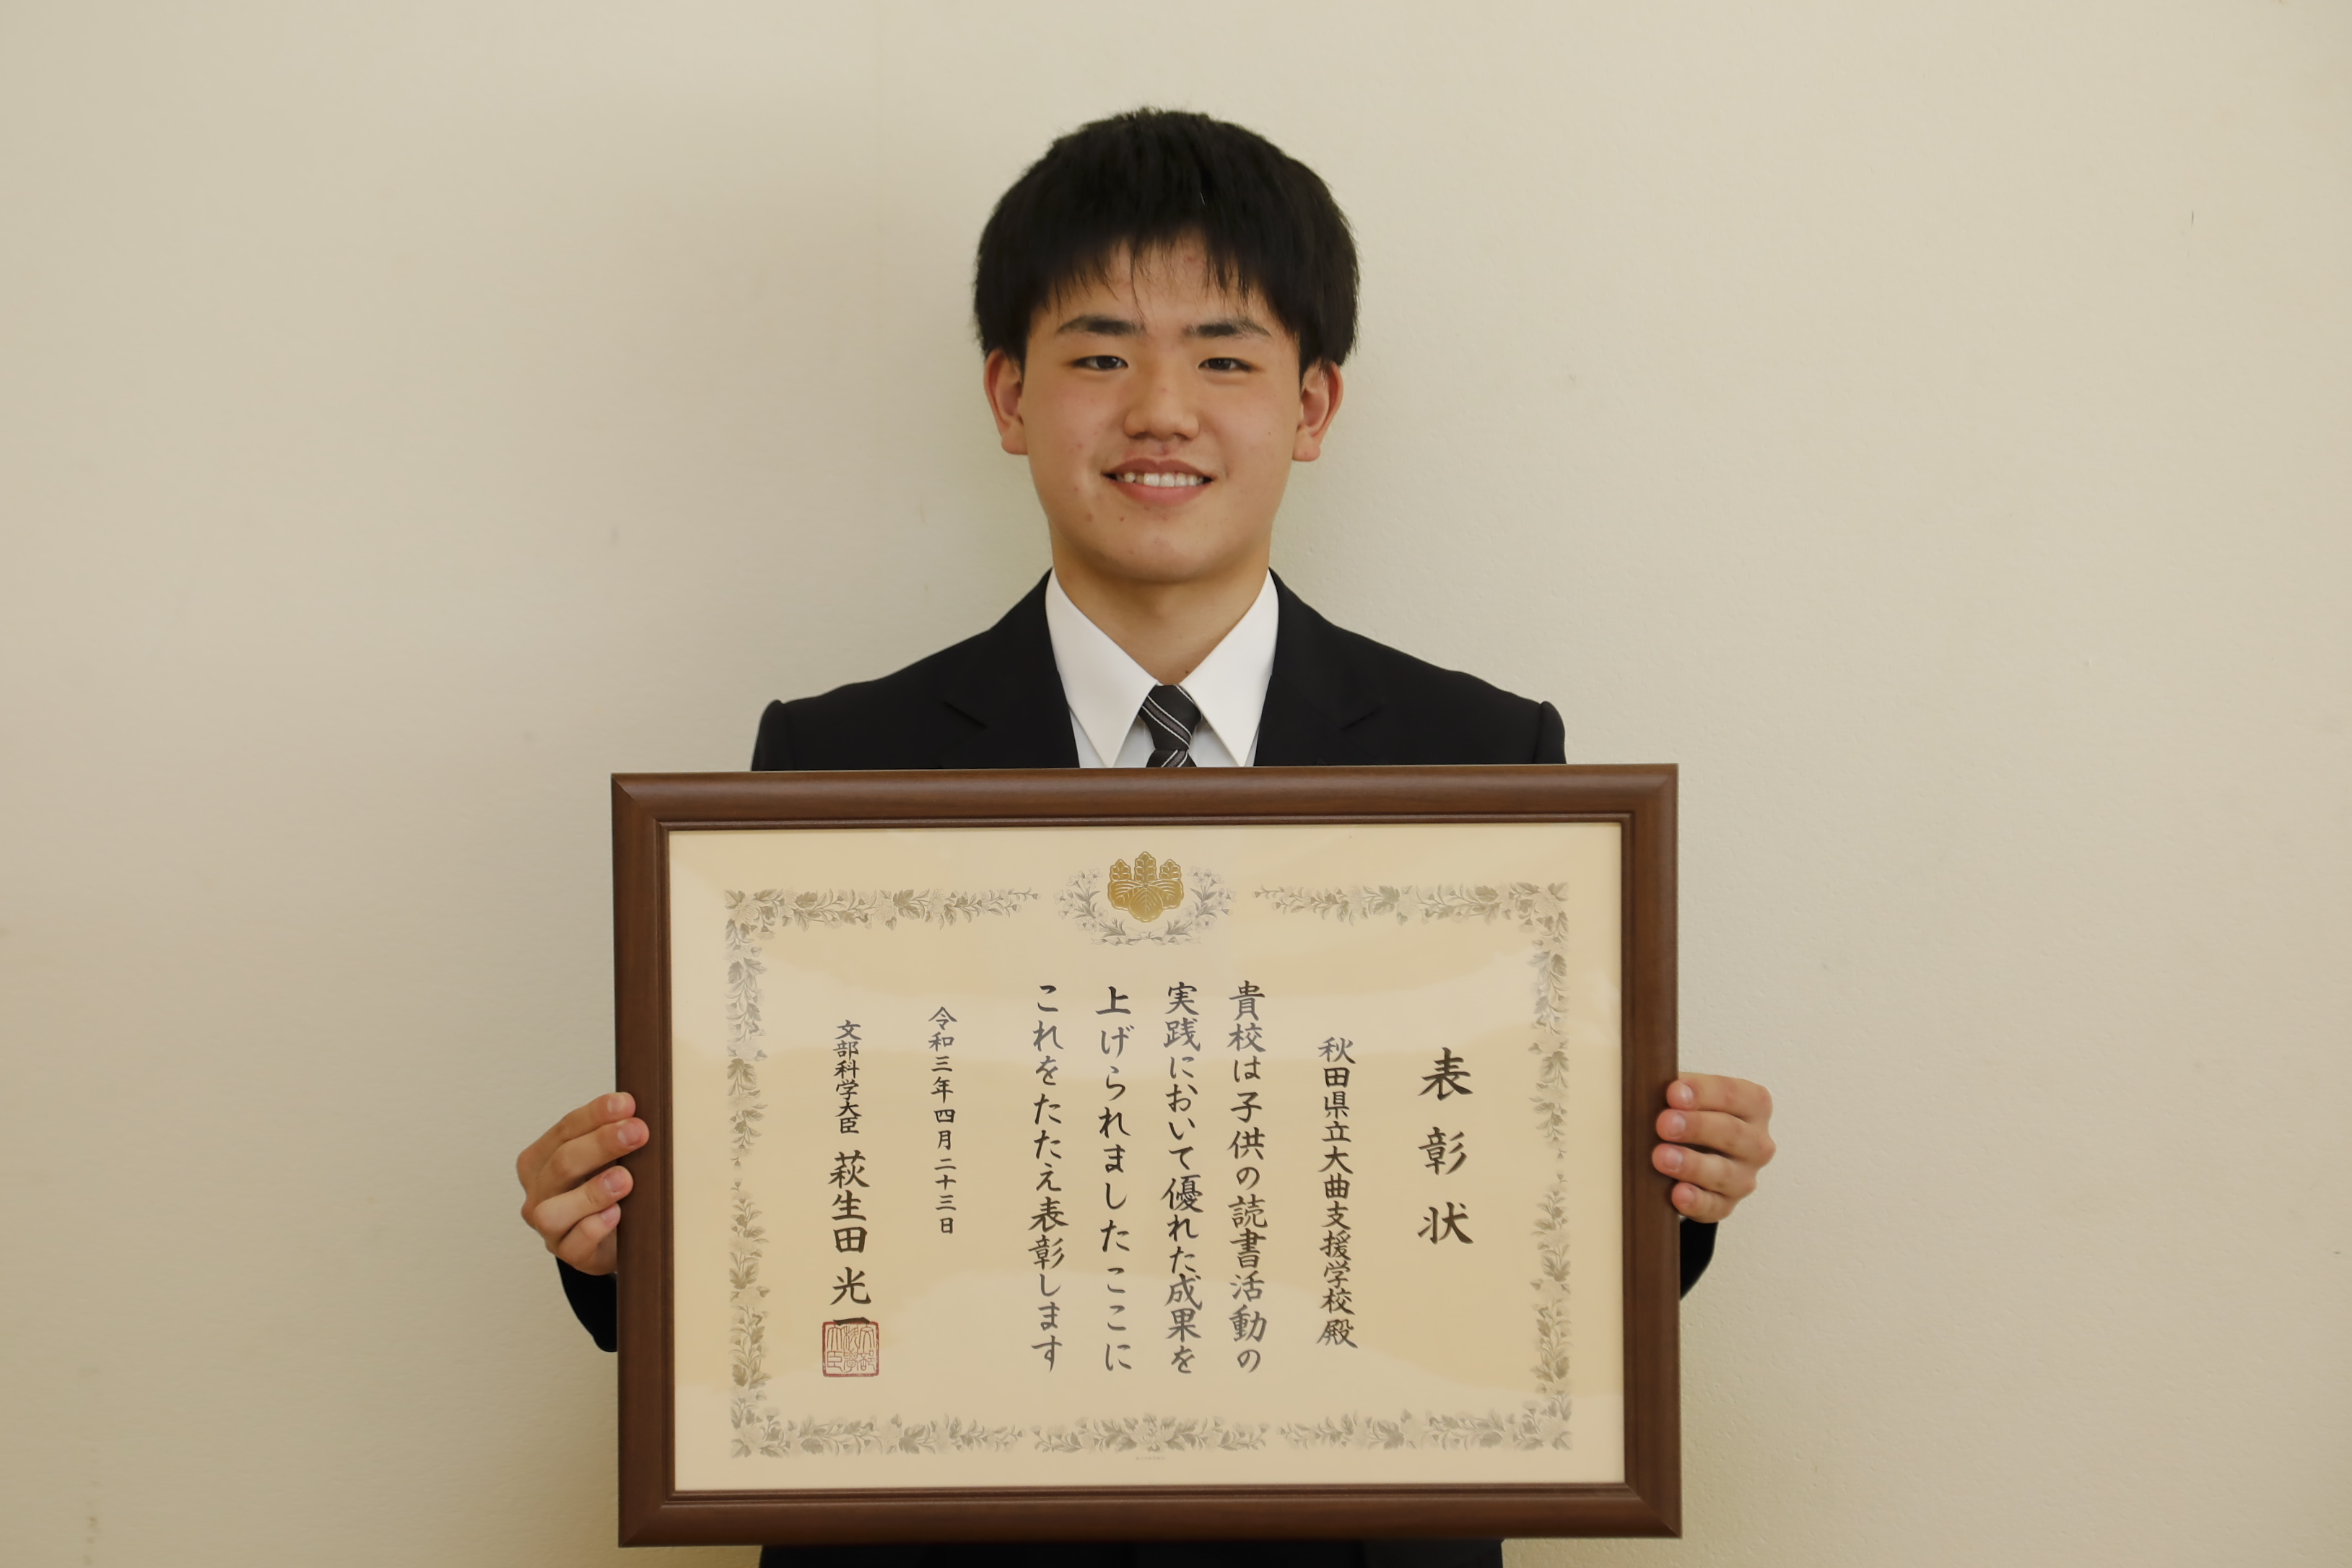 表彰状
秋田県立大曲支援学校殿
貴校は子供の読書活動の
実践において優れた成果を
上げられましたここに
これをたたえ表彰します
令和三年四月二十三日
文部科学大臣 萩生田光一